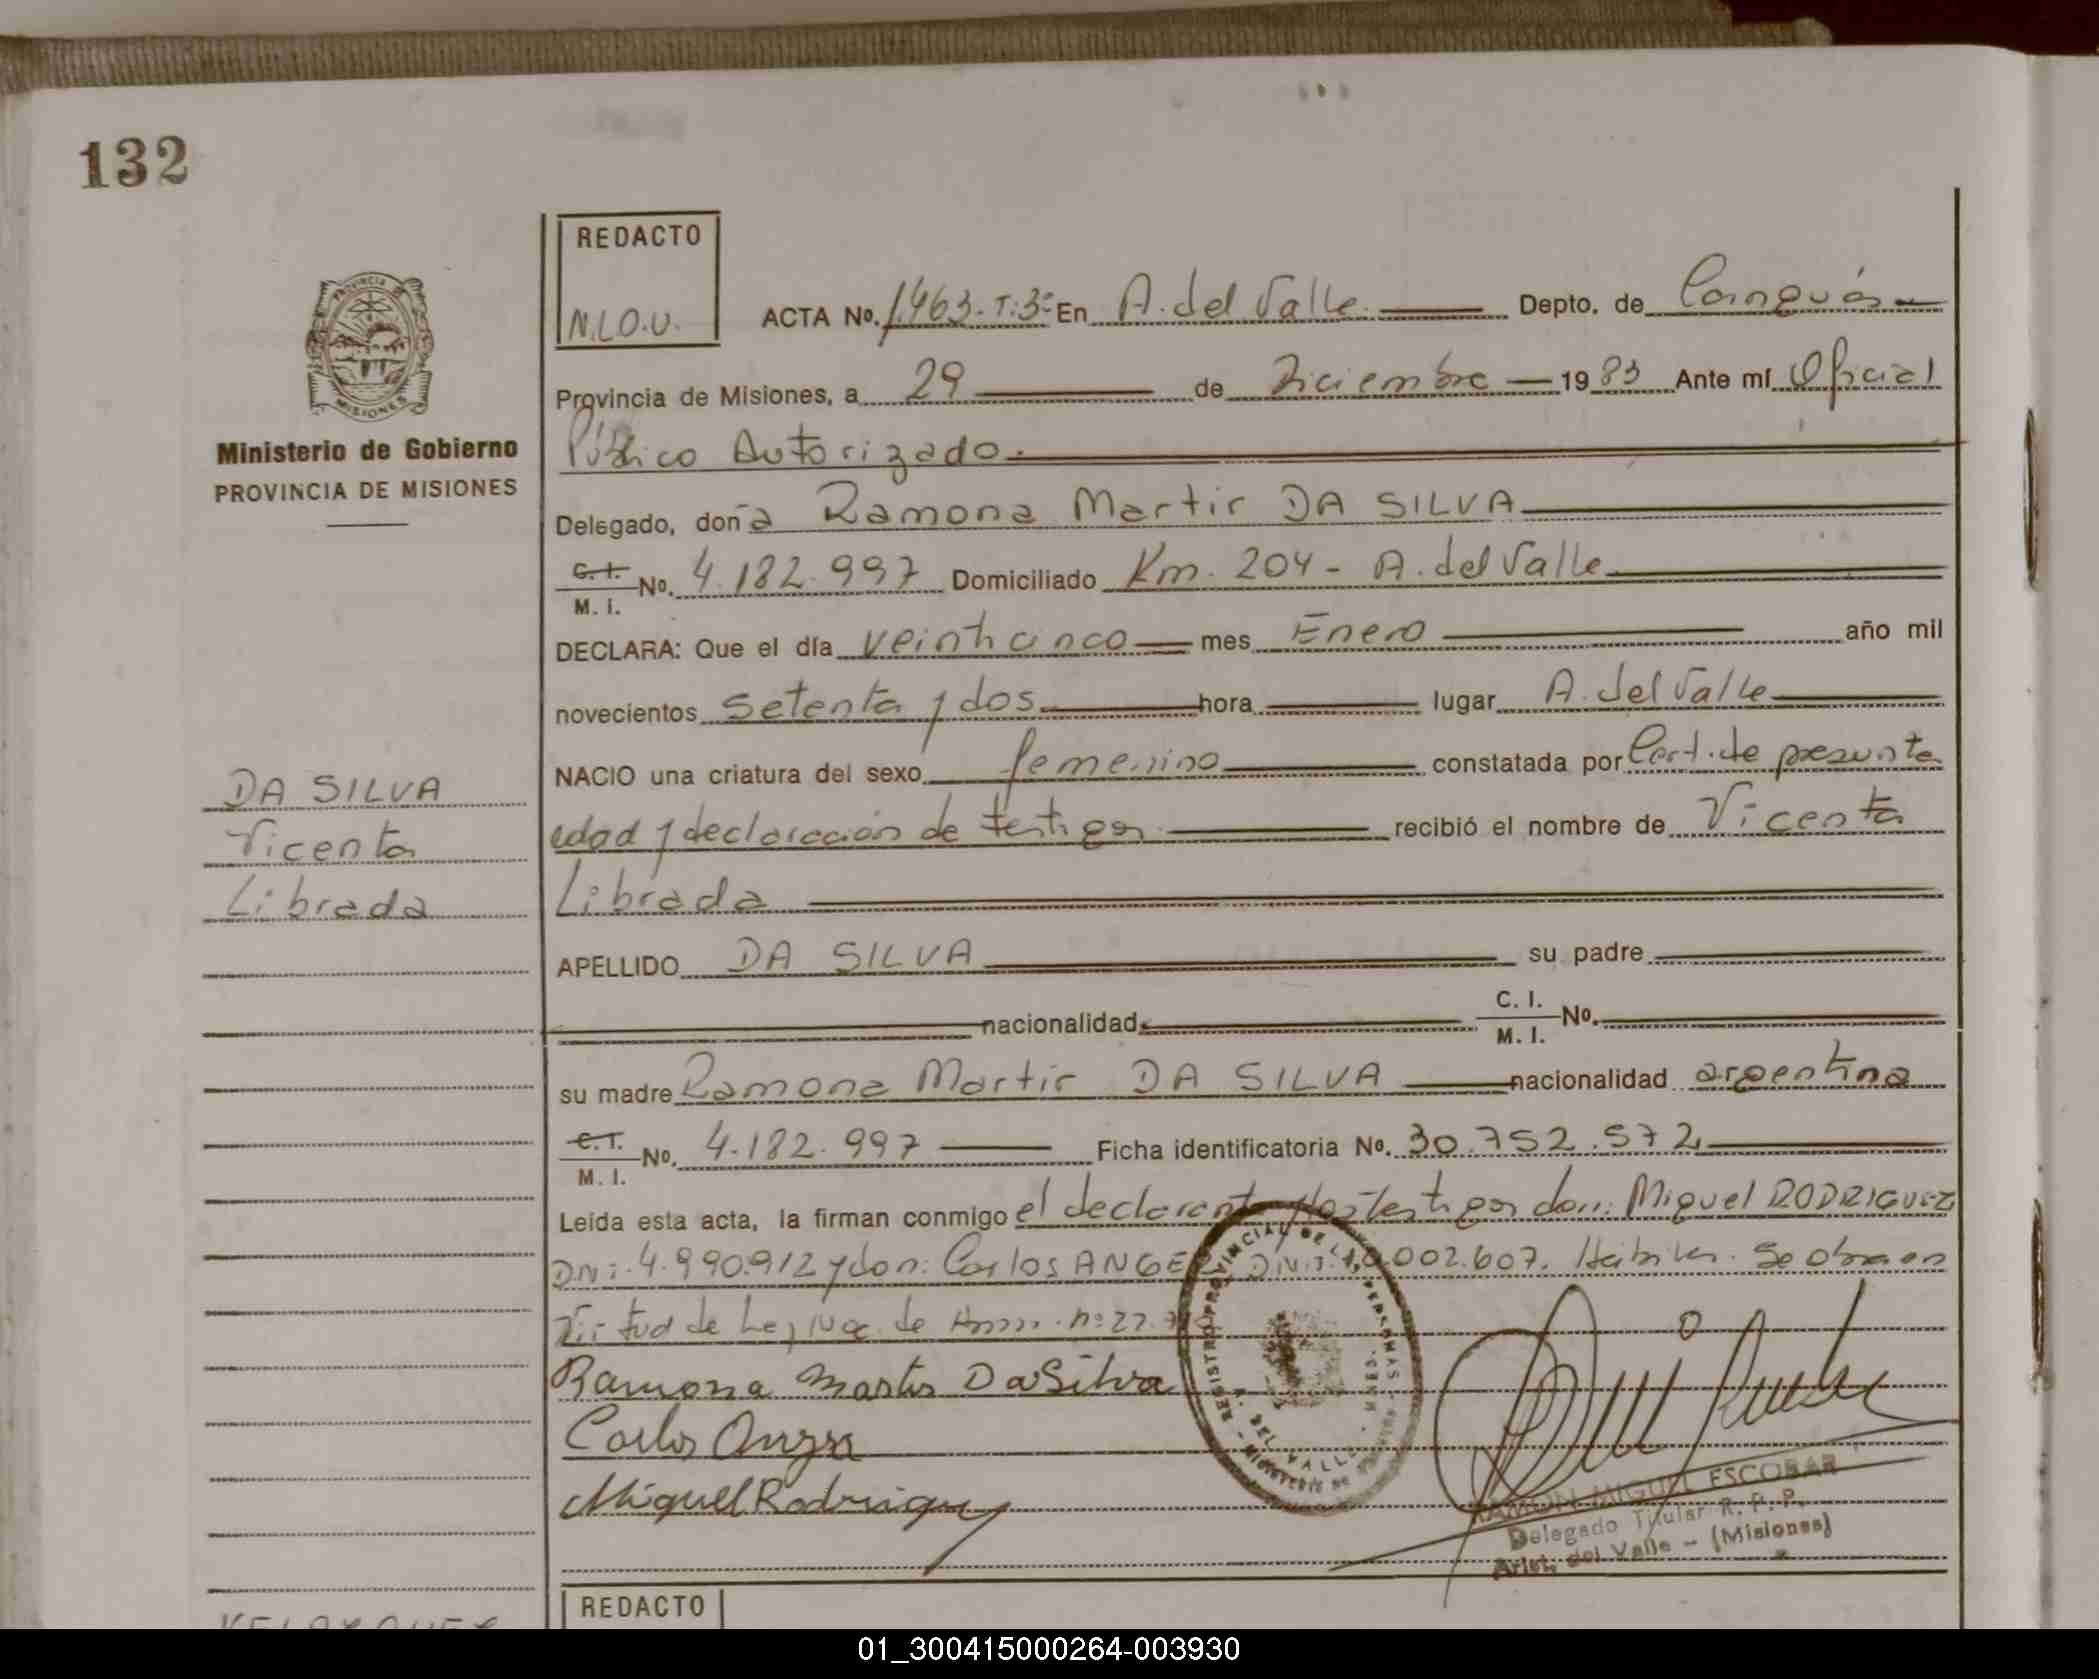 132
REDACTO
N.L.O.U.
ACTA No. 1.463.T:3º En A. del Valle. Depto. de Cainguás
Provincia de Misiones, a 29 de Diciembre 1983 Ante mí Oficial
Público Autorizado.
PROVINCIA DE
MISIONES
Ministerio de Gobierno
PROVINCIA DE MISIONES
Delegado, doña Ramona Martir DA SILVA
C. I.
M. I. No. 4.182.997 Domiciliado Km. 204 - A. del Valle
DECLARA: Que el día veinticinco mes Enero año mil
novecientos setenta y dos hora lugar A. del Valle
NACIO una criatura del sexo femenino constatada por Cert. de presunta
edad y declaración de testigos recibió el nombre de Vicenta
Librada
DA SILVA
Vicenta
Librada
APELLIDO DA SILVA su padre
nacionalidad C. I.
M. I. No.
su madre Ramona Martir DA SILVA nacionalidad argentina
C. I.
M. I. No. 4.182.997 Ficha identificatoria No. 30.752.572
Leída esta acta, la firman conmigo el declarante y los testigos don: Miguel RODRIGUEZ
DNi: 4.990.912 y don: Carlos ANGE 002.607. Hábiles. Se obra en
Virtud de Ley Nac. de nº 22.
Ramona Martir Da Silva
Carlos
Miguel Rodriguez
REGISTRO PROVINCIAL DE LAS PERSONAS
A. DEL VALLE
RAMON MIGUEL ESCOBAR
Delegado Titular R. P. P.
Arist. del Valle - (Misiones)
REDACTO
VELAZQUEZ
01_300415000264-003930